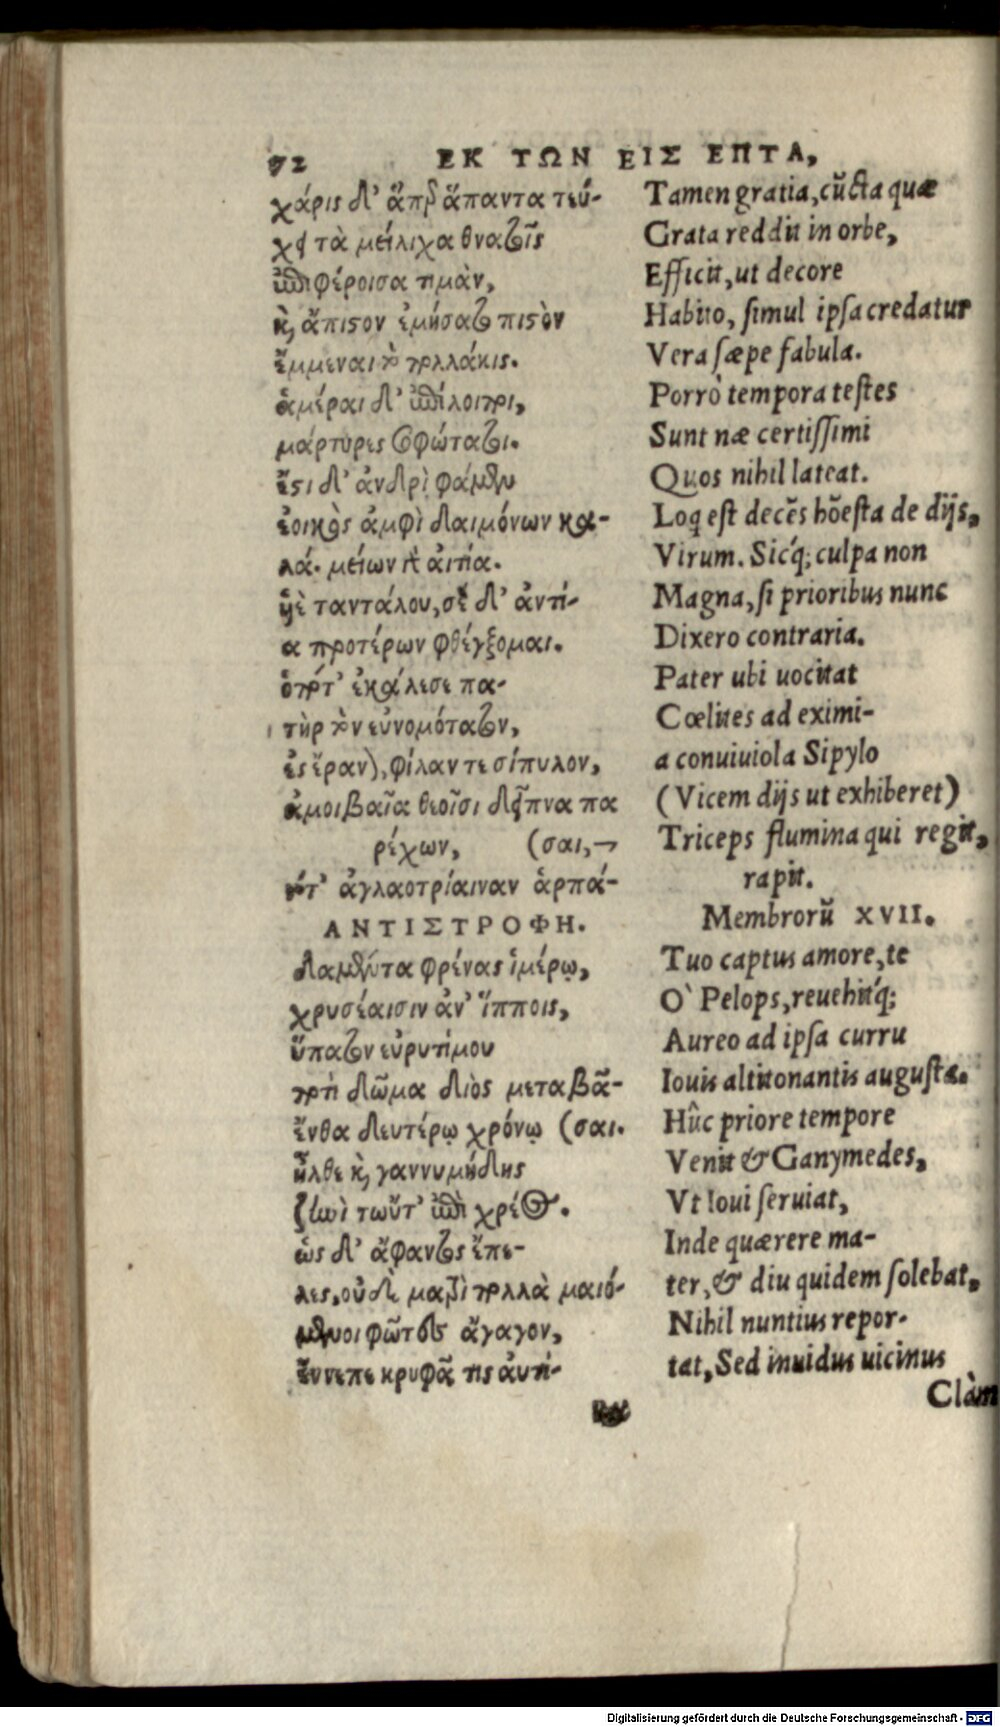 72 ΕΚ ΤΩΝ ΕΙΣ ΕΠΤΑ,
χάρις δ' ἅπερ ἅπαντα τεύ-
χει τὰ μείλιχα θνατοῖς
ἐπιφέροισα τιμὰν,
καὶ ἄπιστον ἐμήσατο πιστὸν
ἔμμεναι τὸ πολλάκις.
ἁμέραι δ' ἐπίλοιποι,
μάρτυρες σοφώτατοι.
ἔστι δ' ἀνδρὶ φάμεν
ἐοικὸς ἀμφὶ δαιμόνων κα-
λά. μείων γὰρ αἰτία.
υἱὲ ταντάλου, σὲ δ' ἀντί-
α προτέρων φθέγξομαι.
ὁπότ' ἐκάλεσε πα-
τὴρ τὸν εὐνομότατον,
ἐς ἔρανον, φίλαν τε σίπυλον,
ἀμοιβαῖα θεοῖσι δεῖπνα πα
ρέχων, (σαι,
τότ' ἀγλαοτρίαιναν ἁρπά-
ΑΝΤΙΣΤΡΟΦΗ.
δαμέντα φρένας ἱμέρῳ,
χρυσέαισιν ἀν' ἵπποις,
ὕπατον εὐρυτίμου
ποτὶ δῶμα διὸς μεταβᾶ-
ἔνθα δευτέρῳ χρόνῳ (σαι.
ἦλθε καὶ γαννυμήδης
ζηνὶ τωὔτ' ἐπὶ χρέος.
ὡς δ' ἄφαντος ἔπε-
λες, οὐδὲ ματρὶ πολλὰ μαιό-
μενοι φῶτες ἄγαγον,
ἔννεπε κρυφᾶ τις αὐτί-
Tamen gratia, cũcta quæ
Grata reddit in orbe,
Efficit, ut decore
Habito, simul ipsa credatur
Vera sæpe fabula.
Porrò tempora testes
Sunt næ certissimi
Quos nihil lateat.
Loq est decẽs hõesta de dijs,
Virum. Sicq́; culpa non
Magna, si prioribus nunc
Dixero contraria.
Pater ubi uocitat
Cœlites ad eximi-
a conuiuiola Sipylo
(Vicem dijs ut exhiberet)
Triceps flumina qui regit,
rapit.
Membrorũ XVII.
Tuo captus amore, te
O` Pelops, reuehitq́;
Aureo ad ipsa curru
Iouis altitonantis augusta.
Hûc priore tempore
Venit & Ganymedes,
Vt Ioui seruiat,
Inde quærere ma-
ter, & diu quidem solebat,
Nihil nuntius repor-
tat, Sed inuidus uicinus
Clàm
Digitalisierung gefördert durch die Deutsche Forschungsgemeinschaft - DFG